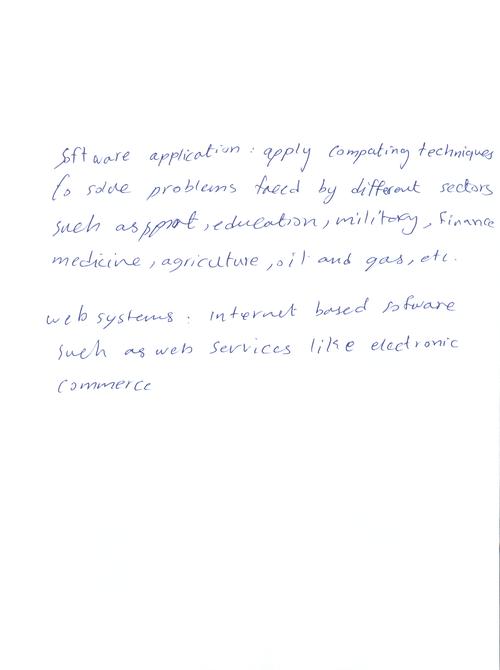 Software application : apply computing techniques
to solve problems faced by different sectors
such as sport, education, military, Finance
medicine, agriculture, oil and gas, etc.
web systems : internet based sofware
such as web services like electronic
commerce